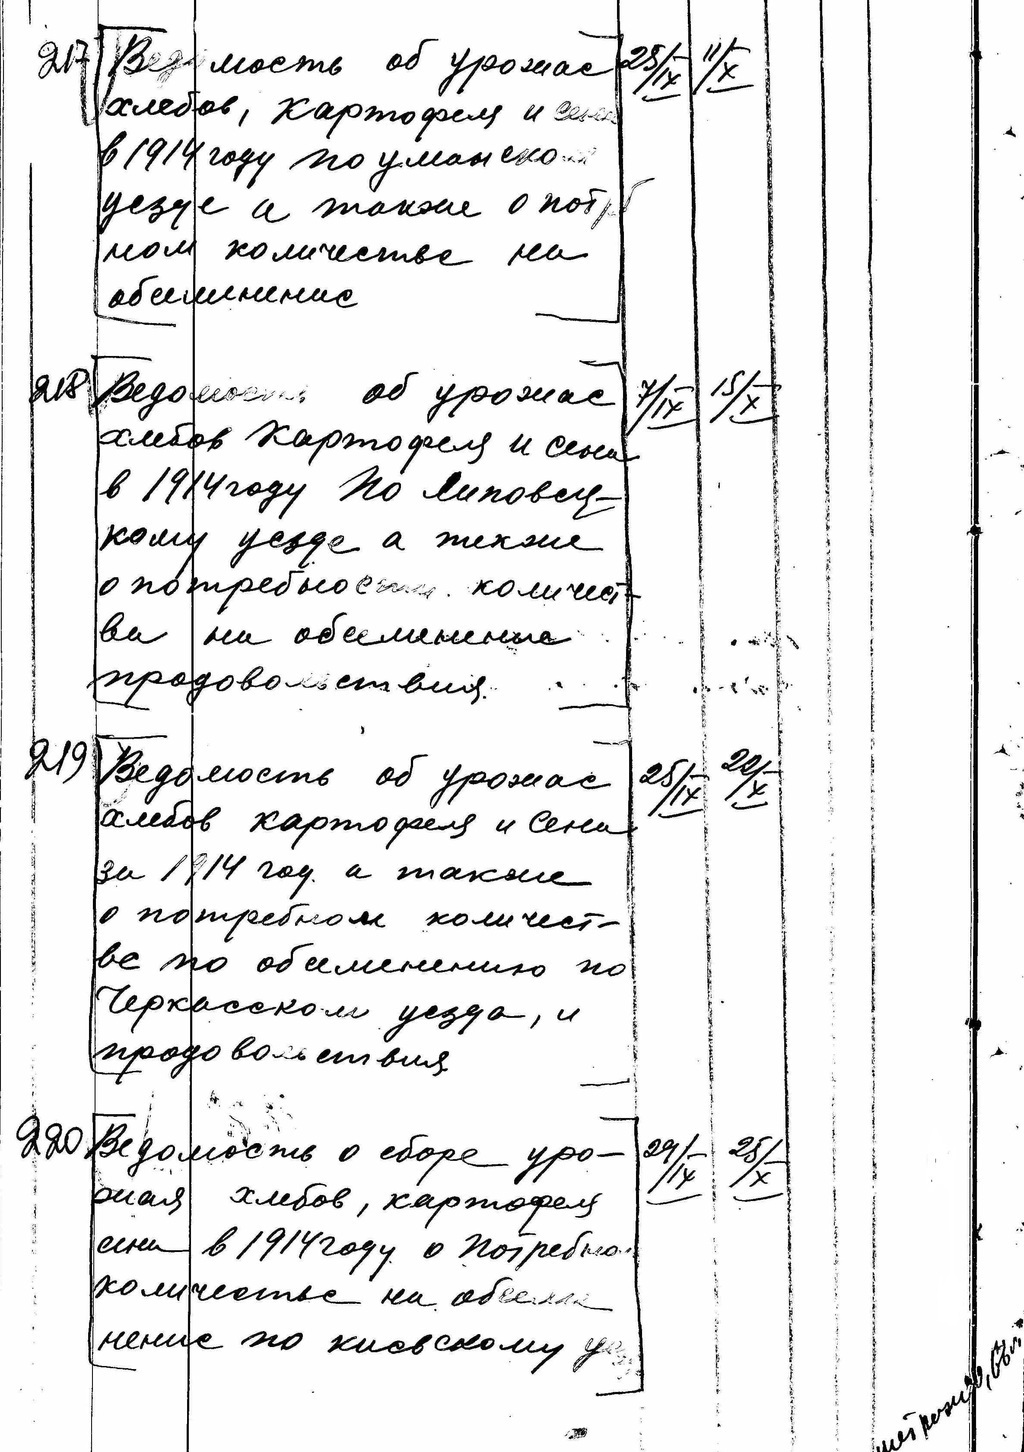 217 Ведомость об урожае 25/IX 11/X
хлебов, картофеля и сена
в 1914 году по уманском
уезде а также о потреб
ном количестве на
обсеменение
218 Ведомость об урожае 7/IX 15/X
хлебов картофеля и сена
в 1914 году по Липовец-
кому уезде а также
о потребности количест-
ва на обсеменение
продовольствия.
219 Ведомость об урожае 25/IX 22/X
хлебов картофеля и сена
за 1914 год. а также
о потребном количест-
ве по обсеменению по
Черкасском уезда, и
продовольствия
220 Ведомость о сборе уро- 29/IX 25/X
жая хлебов, картофеля
сена в 1914 году о потребно
количестве на обсеме
нение по киевскому уез